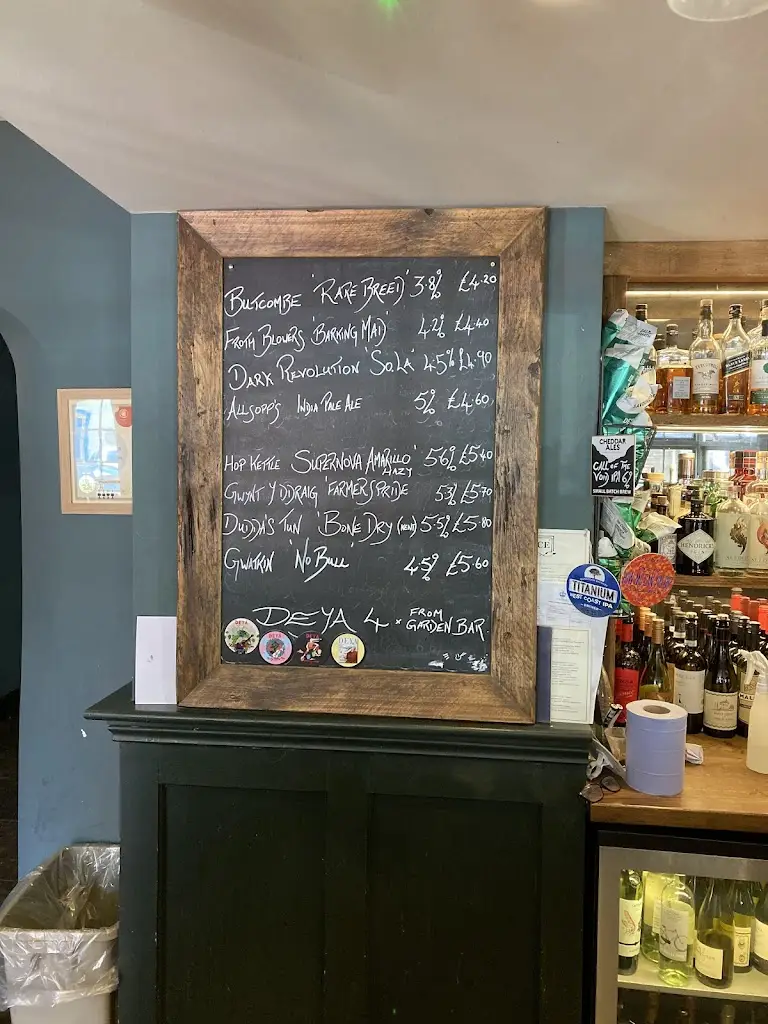 BUTCOMBE 'RARE BREED' 3.8% £4.20
FROTH BLOWERS 'BARKING MAD' 4.2% £4.40
DARK REVOLUTION 'SOLA' 4.5% £4.90
ALLSOPP'S INDIA PALE ALE 5% £4.60
HOP KETTLE 'SUPERNOVA AMARILLO' 5.6% £5.40
HAZY
GWYNT Y DDRAIG 'FARMERS PRIDE 5.3% £5.70
DUDDA'S TUN 'BONE DRY (KENT) 5.5% £5.80
GWATKIN 'NO BULL' 4.5% £5.60
DEYA 4 × FROM
GARDEN BAR
DEYA
DEYA
DEYA
CHEDDAR
ALES
CALL OF THE
VOID IPA 6%
SMALL BATCH BREW
TITANIUM
WEST COAST IPA
HENDRICK'S